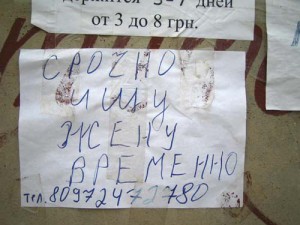 держится 5-7 дней
от 3 до 8 грн.
СРОЧНО
ИЩУ
ЖЕНУ
ВРЕМЕННО
тел. 80972472780